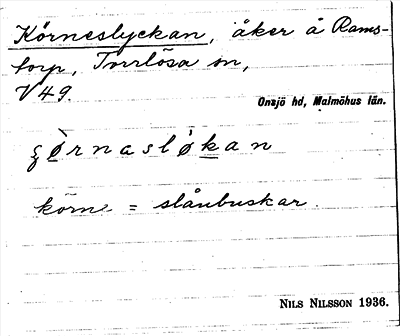 Körneslyckan, åker å Rams-
torp, Torrlösa sn,
V49.
Onsjö hd, Malmöhus län.
ʒø̀rnaslø̀kan
körne = slånbuskar.
NILS NILSSON 1936.